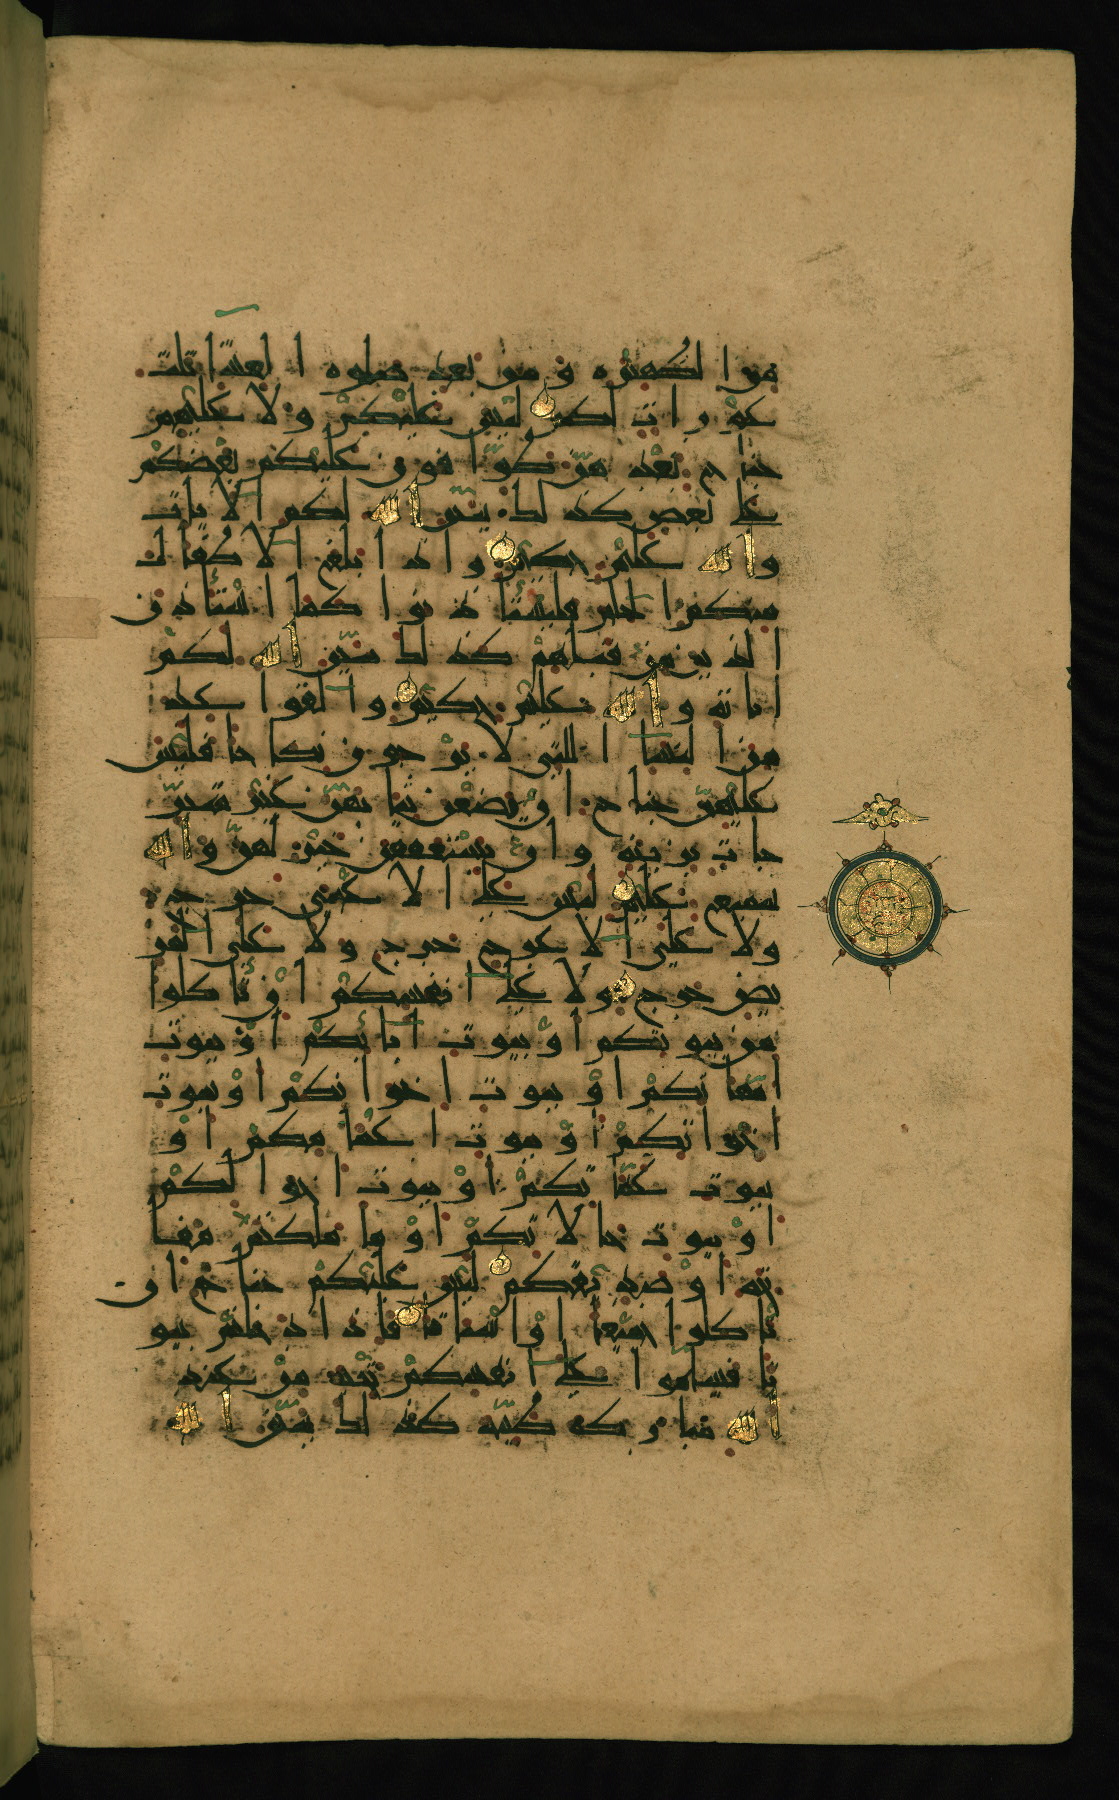 من الظهيرة و من بعد صلوة ا لعشا ثلث
عو ر ا ت لكم ليس عليكم و لا عليهم
جنا ح بعد هن طوا فو ن عليكم بعضكم
على بعض كذ لك يبين ا لله لكم ا لا يا ت
و ا لله عليم حكيم و ا ذ ا بلغ ا لا طفا ل
منكم ا لحلم فليستا ذ نو ا كما ا ستا ذ ن
ا لذ ين من قبلهم كذ لك يبين ا لله لكم
ا يا ته و ا لله عليم حكيم و ا لقو ا عد
من ا لنسا ا للتى لا ير جو ن نكا حا فليس
عليهن جنا ح ا ن يضعن ثيا بهن غير متبر
جا ت بز ينة و ا ن يستعففن خير لهن و ا لله
سميع عليم ليس على ا لا عمى حر ج
و لا على ا لا عر ج حر ج و لا على ا لمر
يض حر ج و لا على ا نفسكم ا ن تا كلو ا
من بيو تكم ا و بيو ت ا با ئكم ا و بيو ت
ا مها تكم ا و بيو ت ا خو ا نكم ا و بيو ت
ا خو ا تكم ا و بيو ت ا عما مكم ا و
بيو ت عما تكم ا و بيو ت ا خو ا لكم
ا و بيو ت خا لا تكم ا و ما ملكتم مفا
تحه ا و صد يقكم ليس عليكم جنا ح ا ن
تا كلو ا جميعا ا و ا شتا تا فا ذ ا د خلتم بيو
تا فسلمو ا على ا نفسكم تحية من عند
ا لله مبا ر كة طيبة كذ لك يبين ا لله